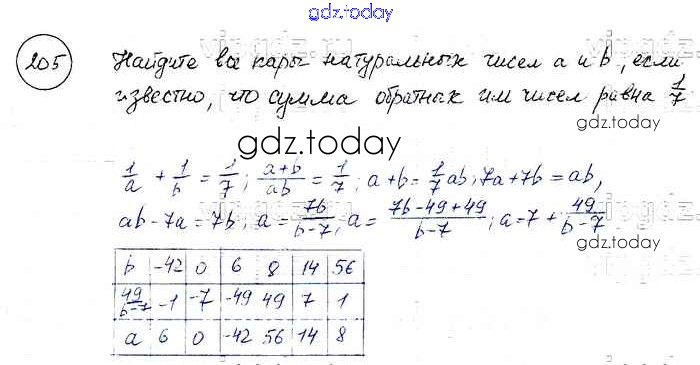 gdz.today
205 Найдите все пары натуральных чисел a и b, если
известно, что сумма обратных им чисел равна 1/7
gdz.today
1/a + 1/b = 1/7; (a+b)/ab = 1/7; a+b = 1/7 ab; 7a+7b = ab,
ab-7a = 7b; a = 7b/(b-7); a = (7b-49+49)/(b-7); a = 7 + 49/(b-7)
gdz.today
b -42 0 6 8 14 56
49/(b-7) -1 -7 -49 49 7 1
a 6 0 -42 56 14 8